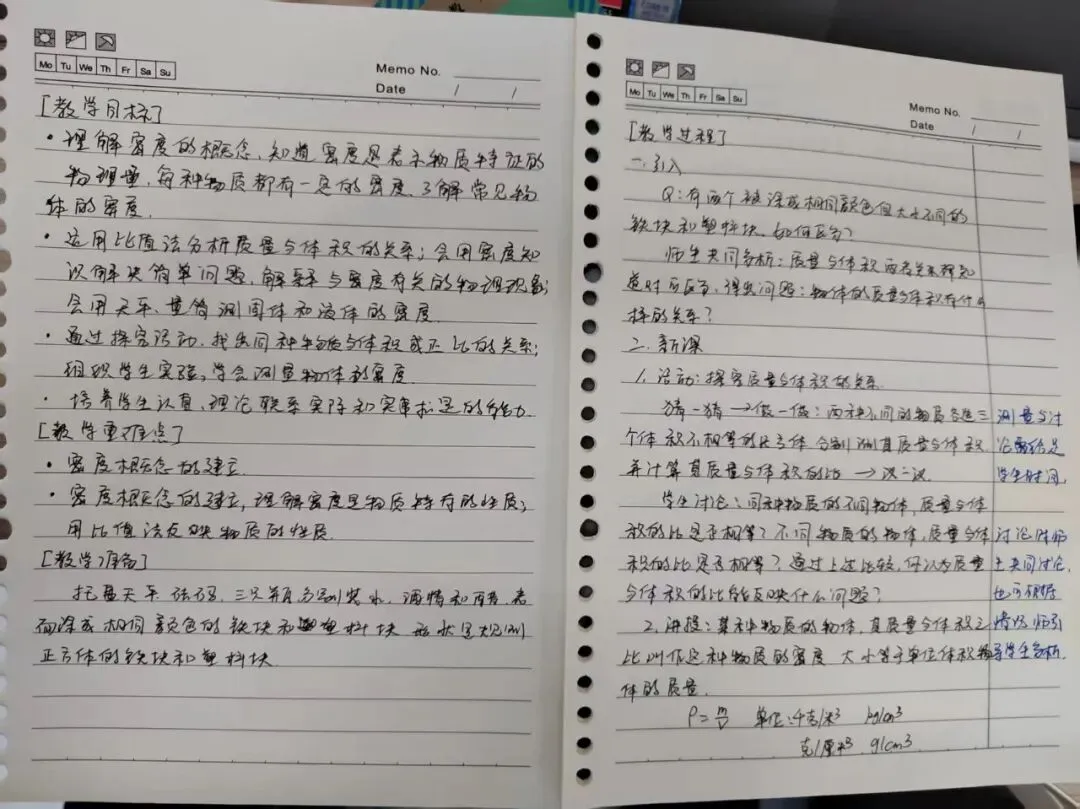 Mo Tu We Th Fr Sa Su
Memo No.
Date / /
[教学目标]
·理解密度的概念、知道密度是表示物质特征的
物理量,每种物质都有一定的密度、了解常见物
体的密度.
·运用比值法分析质量与体积的关系;会用密度知
识解决简单问题,解释与密度有关的物理现象;
会用天平、量筒测固体和液体的密度
·通过探究活动,找出同种物质与体积成正比的关系;
组织学生实验,学会测量物体的密度
·培养学生认真、理论联系实际和实事求是的能力.
[教学重难点]
·密度概念的建立.
·密度概念的建立,理解密度是物质特有的性质;
用比值法反映物质的性质.
[教学准备]
托盘天平、砝码、三只瓶分别装水、酒精和
面涂成相同颜色的铁块和塑料块 形状是规则
正方体的铁块和塑料块.
Mo Tu We Th Fr Sa Su
Memo No.
Date / /
[教学过程]
一.引入
Q:有两个被涂成相同颜色但大小不同的
铁块和塑料块、如何区分?
师生共同分析:质量与体积两者关系
得出问题:物体的质量与体积有什么
样的关系?
二.新课
1.活动:探究质量与体积的关系
猜一猜→做一做:两种不同的物质各选三
个体积不相等的正方体、分别测其质量与体积.
并计算其质量与体积的比→议一议.
学生讨论:同种物质的不同物体,质量与体
积的比是否相等?不同物质的物体,质量与体
积的比是否相等?通过上述比较,你认为质量
与体积的比能反映什么问题?
2.讲授:某种物质的物体,其质量与体积之
比叫作这种物质的密度 大小等于单位体积物
体的质量.
ρ=m/V 单位:千克/米3 kg/cm3
克/厘米3 g/cm3
测量与讨
论需给足
学生时间,
讨论时师
生共同讨论,
也可视
情况师引
导学生分析.